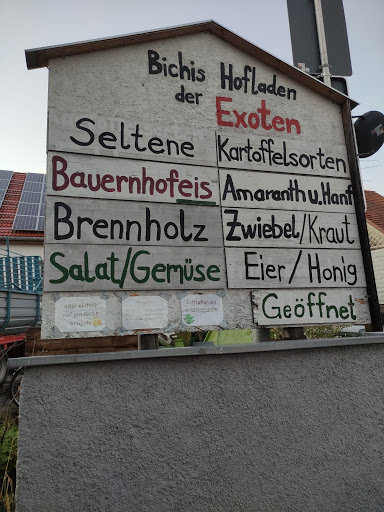 Bichis Hofladen
der Exoten
Seltene Kartoffelsorten
Bauernhofeis Amaranth u. Hanf
Brennholz Zwiebel/Kraut
Salat/Gemüse Eier/Honig
Geöffnet